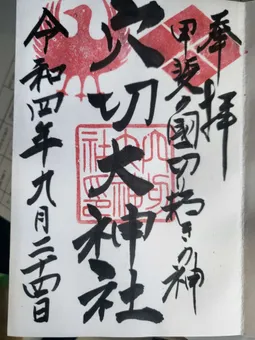 奉拝
甲斐国の切り抜きの神
穴切大神社
令和四年九月二十四日